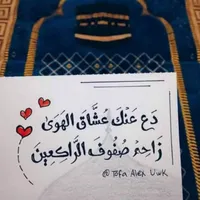 دَع عَنْكَ عُشَّاقَ الهَوَى
زَاحِمْ صُفُوفَ الرَّاكِعِينَ
@Tofa Alex Uwk